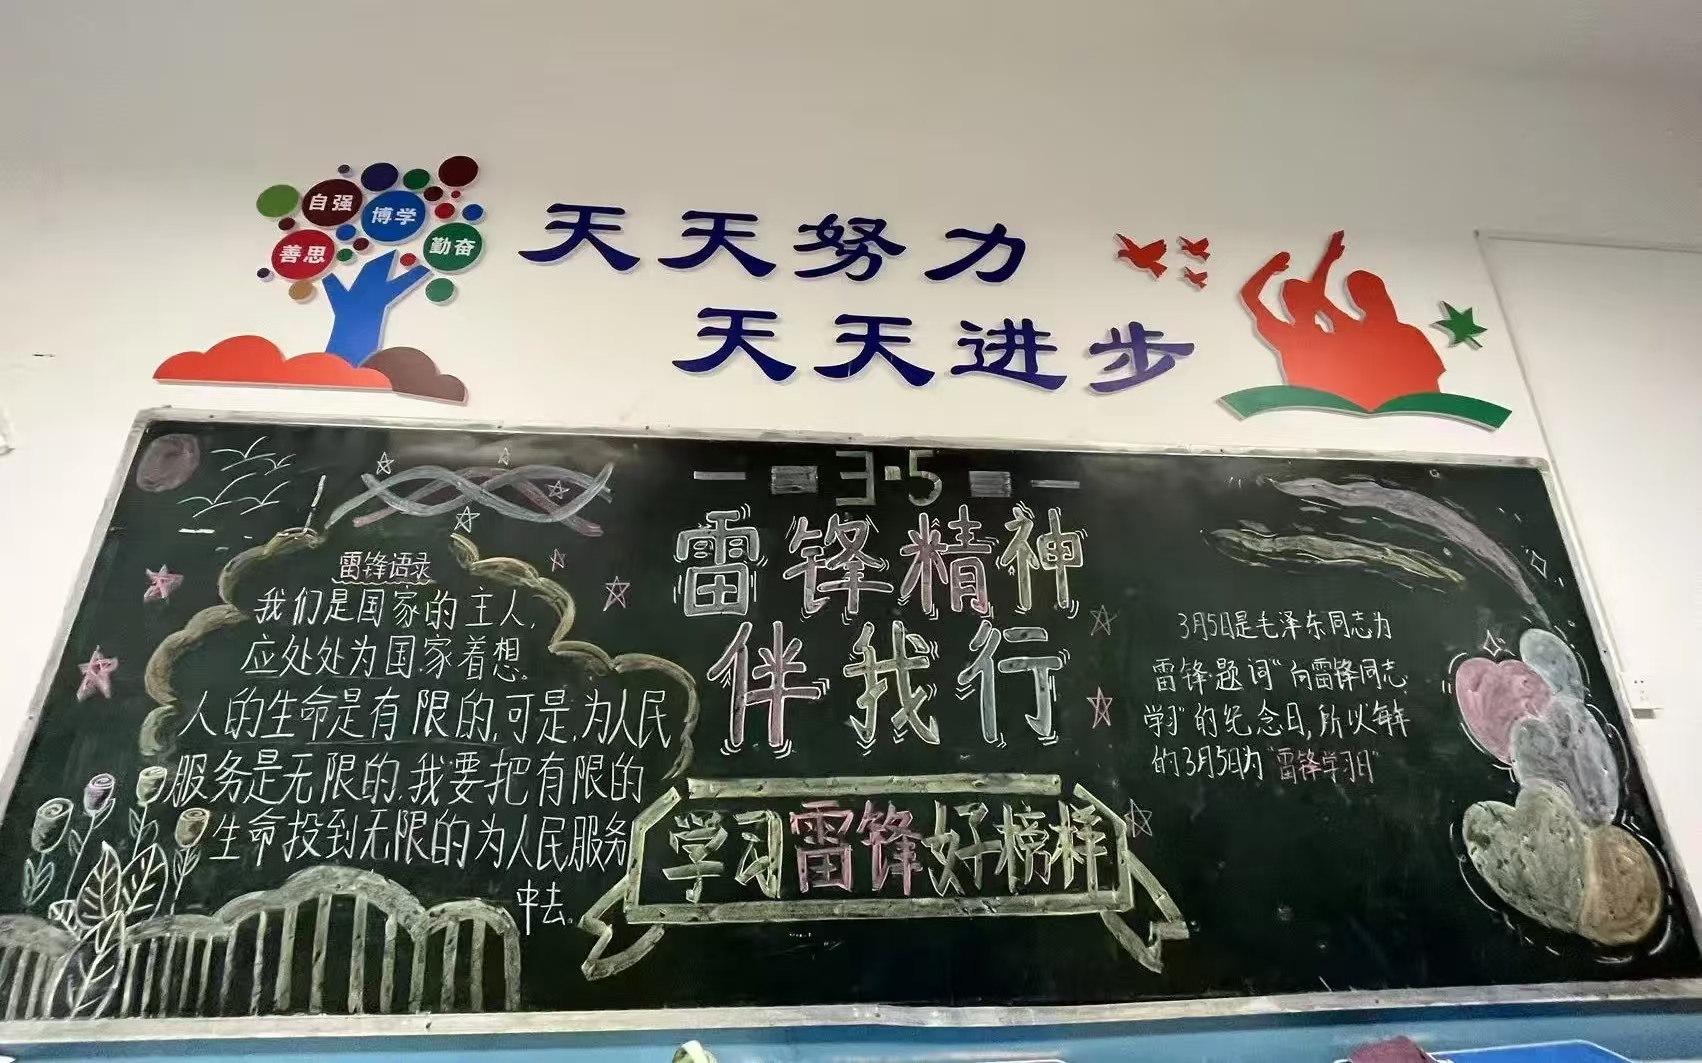 自强
博学
善思
勤奋
天天努力
天天进步
3·5
雷锋精神
伴我行
学习雷锋好榜样
雷锋语录
我们是国家的主人,
应处处为国家着想。
人的生命是有限的,可是,为人民
服务是无限的,我要把有限的
生命投到无限的为人民服务
中去。
3月5日是毛泽东同志为
雷锋题词“向雷锋同志
学习”的纪念日,所以每年
的3月5日为“雷锋学习日”